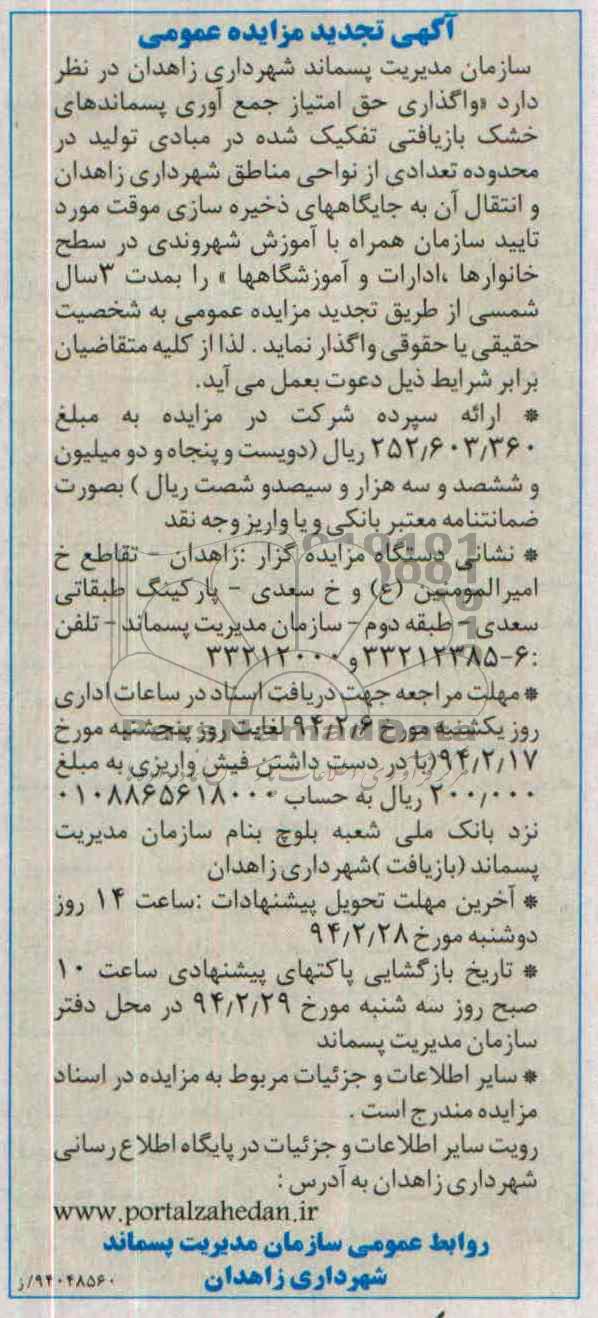 آگهی تجدید مزایده عمومی
سازمان مدیریت پسماند شهرداری زاهدان در نظر
دارد «واگذاری حق امتیاز جمع آوری پسماندهای
خشک بازیافتی تفکیک شده در مبادی تولید در
محدوده تعدادی از نواحی مناطق شهرداری زاهدان
و انتقال آن به جایگاههای ذخیره سازی موقت مورد
تایید سازمان همراه با آموزش شهروندی در سطح
خانوارها ،ادارات و آموزشگاهها » را بمدت ۳سال
شمسی از طریق تجدید مزایده عمومی به شخصیت
حقیقی یا حقوقی واگذار نماید . لذا از کلیه متقاضیان
برابر شرایط ذیل دعوت بعمل می آید.
* ارائه سپرده شرکت در مزایده به مبلغ
۲۵۲/۶۰۳/۳۶۰ ریال (دویست و پنجاه و دو میلیون
و ششصد و سه هزار و سیصدو شصت ریال ) بصورت
ضمانتنامه معتبر بانکی و یا واریز وجه نقد
* نشانی دستگاه مزایده گزار :زاهدان – تقاطع خ
امیرالمومنین (ع) و خ سعدی – پارکینگ طبقاتی
سعدی – طبقه دوم – سازمان مدیریت پسماند – تلفن
:۶-۳۳۲۱۲۳۸۵ و ۳۳۲۱۲۰۰۰
* مهلت مراجعه جهت دریافت اسناد در ساعات اداری
روز یکشنبه مورخ ۹۴/۲/۶ لغایت روز پنجشنبه مورخ
۹۴/۲/۱۷(با در دست داشتن فیش واریزی به مبلغ
۲۰۰/۰۰۰ ریال به حساب ۰۱۰۸۸۶۵۶۱۸۰۰۰
نزد بانک ملی شعبه بلوچ بنام سازمان مدیریت
پسماند (بازیافت )شهرداری زاهدان
* آخرین مهلت تحویل پیشنهادات :ساعت ۱۴ روز
دوشنبه مورخ ۹۴/۲/۲۸
* تاریخ بازگشایی پاکتهای پیشنهادی ساعت ۱۰
صبح روز سه شنبه مورخ ۹۴/۲/۲۹ در محل دفتر
سازمان مدیریت پسماند
* سایر اطلاعات و جزئیات مربوط به مزایده در اسناد
مزایده مندرج است .
رویت سایر اطلاعات و جزئیات در پایگاه اطلاع رسانی
شهرداری زاهدان به آدرس :
www.portalzahedan.ir
روابط عمومی سازمان مدیریت پسماند
شهرداری زاهدان
۹۴۰۴۸۵۶۰/ز